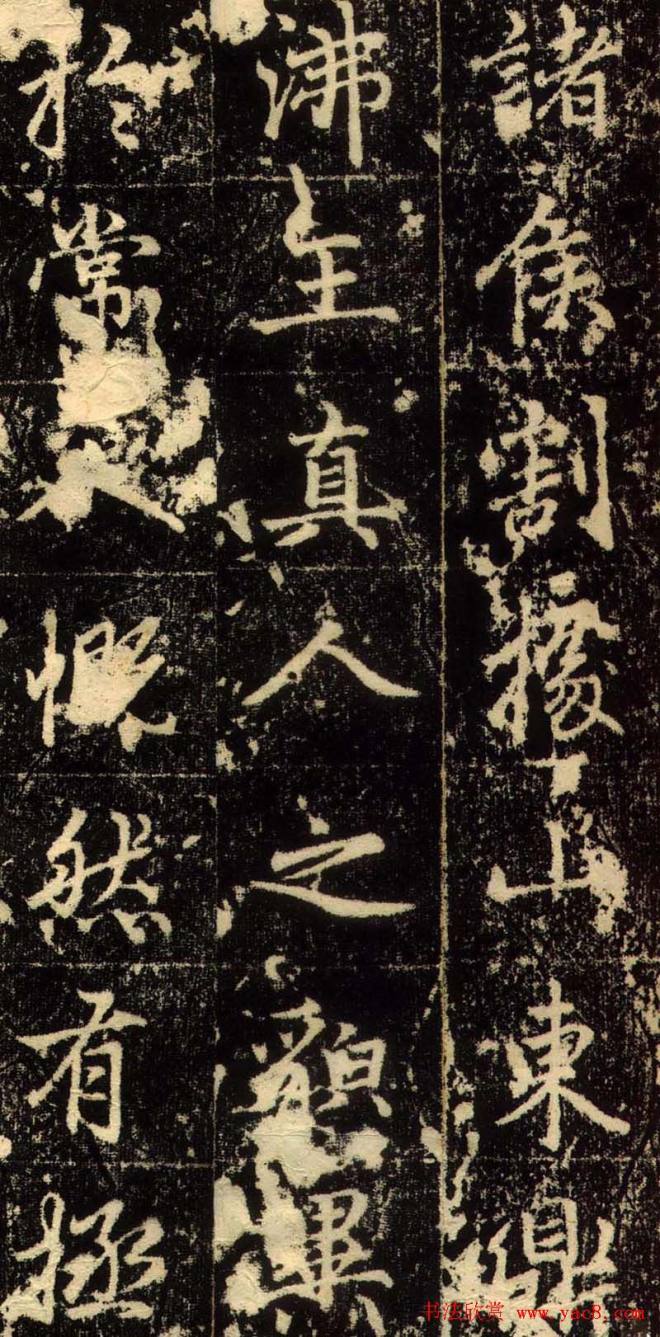 諸侯割據山東鼎
沸真人之異
於常人慨然有拯
书法欣赏 www.yac8.com